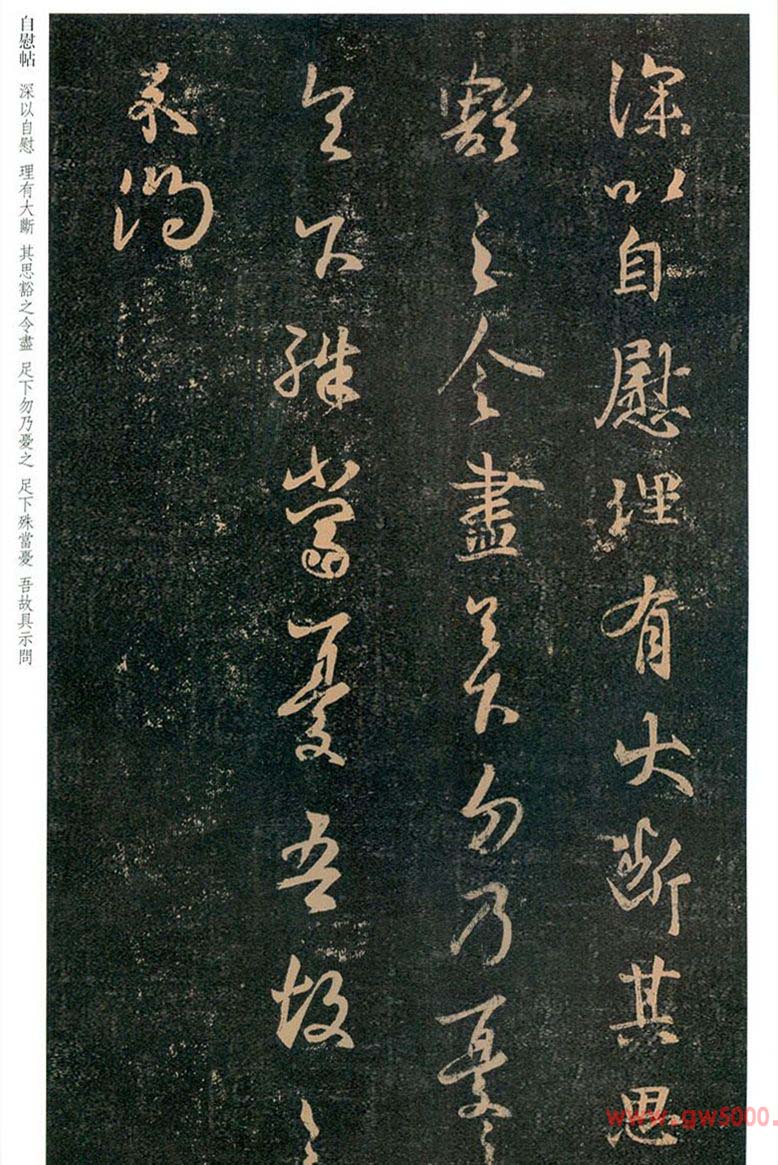 深以自慰理有大斷其思
豁之令盡足下勿乃憂之
足下殊當憂吾故具
示問
自慰帖 深以自慰 理有大斷 其思豁之令盡 足下勿乃憂之 足下殊當憂 吾故具示問
www.gw5000.